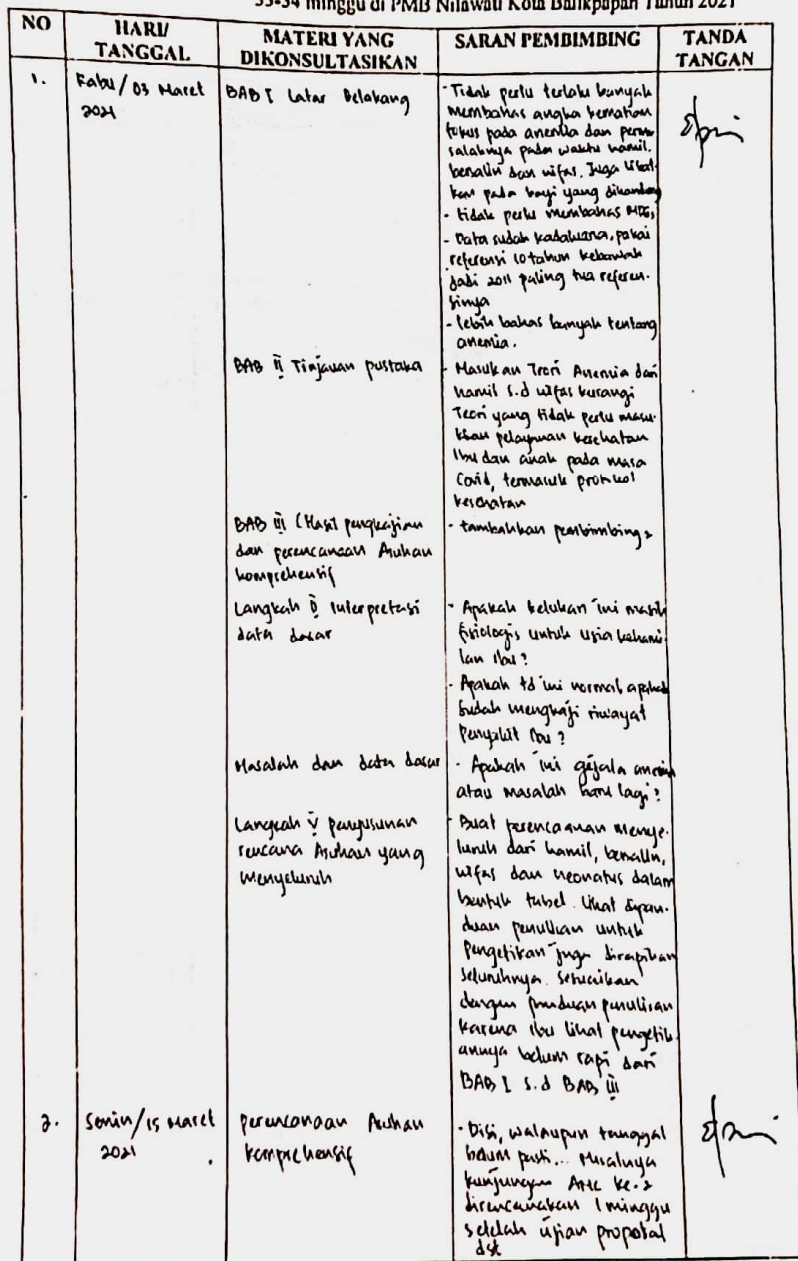 33-34 minggu di PMB Nilawati Kota Balikpapan Tahun 2021
NO
HARI/
TANGGAL
MATERI YANG
DIKONSULTASIKAN
SARAN PEMBIMBING
TANDA
TANGAN
1.
Rabu/03 Maret
2021
BAB I Latar Belakang
- Tidak perlu terlalu banyak
membahas angka kematian
fokus pada anemia dan perma
salahnya pada waktu hamil.
bersalin dan nifas. Juga
pada bayi yang dikandung
- tidak perlu membahas
- Data sudah kadaluarsa, pakai
referensi 10 tahun kebawah
Jadi 2011 paling tua referen-
sinya
- lebih bahas banyak tentang
anemia.
BAB II Tinjauan pustaka
- Masukan Teori Anemia dari
hamil s.d nifas kurangi
Teori yang tidak perlu masu-
kkan pelayanan kesehatan
Ibu dan anak pada masa
Covid, termasuk protokol
kesehatan
BAB III (Hasil pengkajian
dan perencanaan Asuhan
komprehensif
- tambahkan pembimbing 2
Langkah II Interpretasi
data dasar
- Apakah keluhan ini masih
fisiologis untuk usia kehami-
lan ibu?
- Apakah td ini normal apakah
sudah mengkaji riwayat
Penyakit ibu?
Masalah dan data dasar
- Apakah ini gejala anemia
atau masalah baru lagi?
Langkah V penyusunan
rencana Asuhan yang
menyeluruh
- Buat perencanaan menye-
luruh dari hamil, bersalin,
nifas dan neonatus dalam
bentuk tabel. Lihat dipan-
duan penulisan untuk
Pengetikan juga dirapihkan
seluruhnya. Sesuaikan
dengan panduan penulisan
karena ibu lihat pengetik
annya belum rapi dari
BAB I s.d BAB III
2.
Senin/15 Maret
2021
perencanaan Asuhan
komprehensif
- Diisi, walaupun tanggal
belum pasti... Misalnya
kunjungan ANC ke-2
direncanakan 1 minggu
setelah ujian proposal
dst